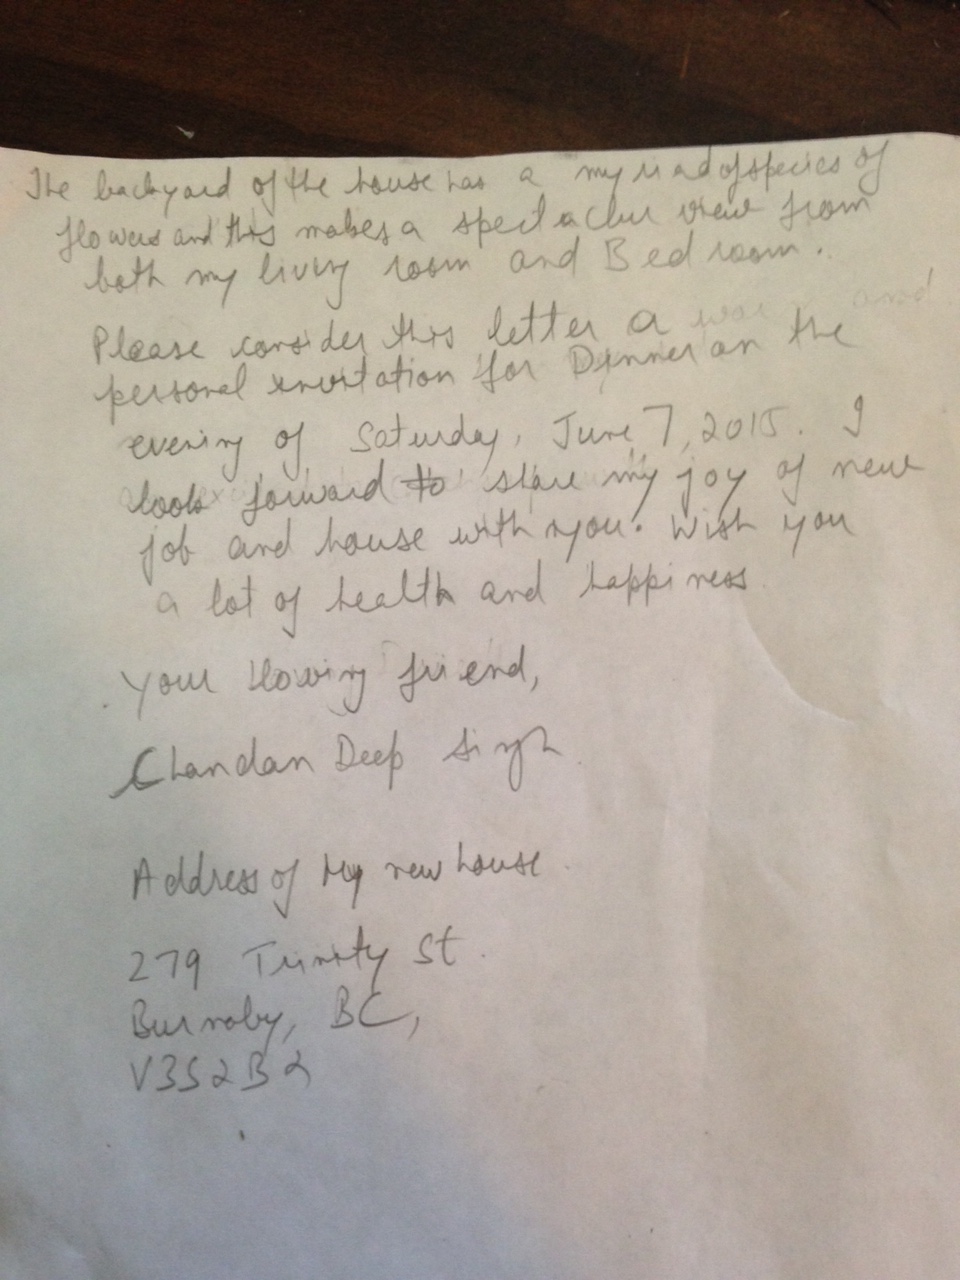 The backyard of the house has a myriad of species of
flowers and this makes a spectacular view from
both my living room and Bed room.
Please consider this letter a
personal invitation for Dinner on the
evening of Saturday, June 7, 2015. I
look forward to share my joy of new
job and house with you. Wish you
a lot of health and happiness.
Your loving friend,
Chandan Deep Singh
Address of My new house
279 Trinity St.
Burnaby, BC,
V3S2B2